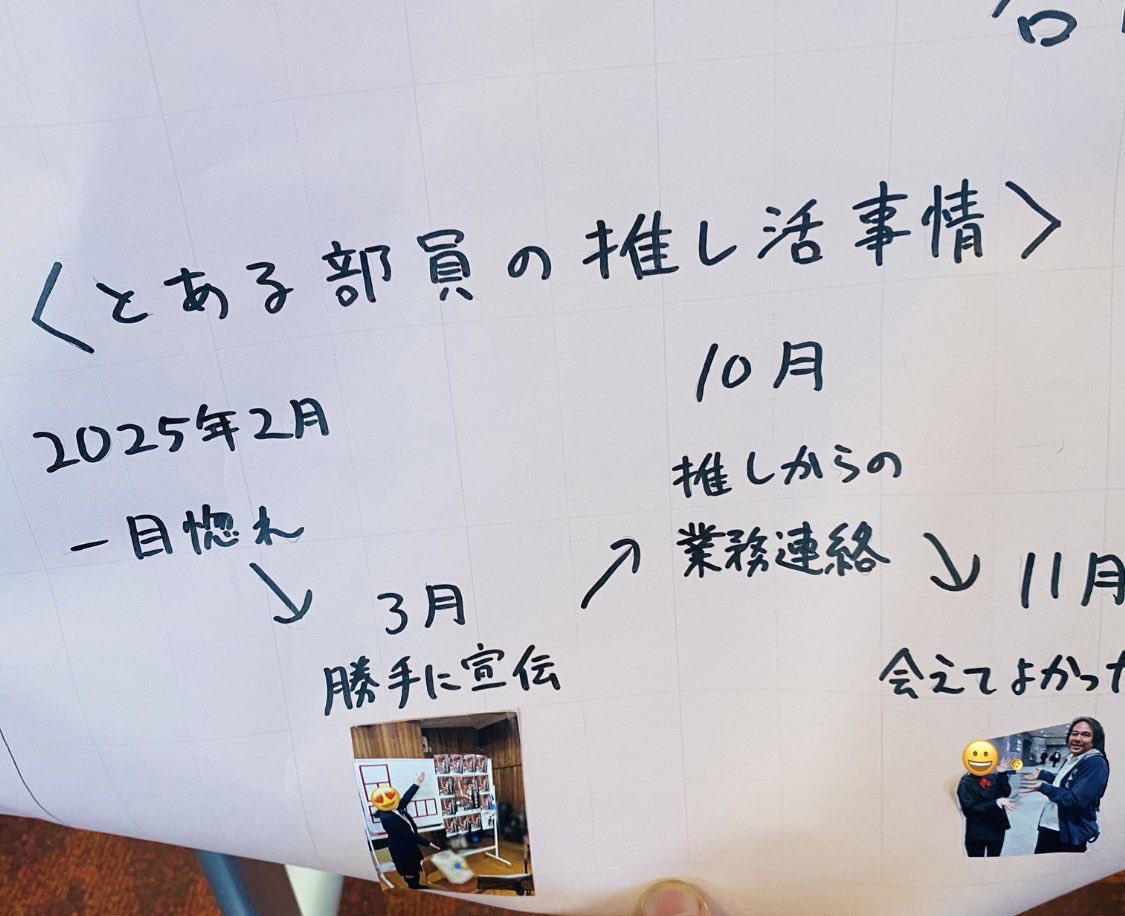 <とある部員の推し活事情>
2025年2月
一目惚れ
↘
3月
勝手に宣伝
↗
10月
推しからの
業務連絡
↘
11月
会えてよかった